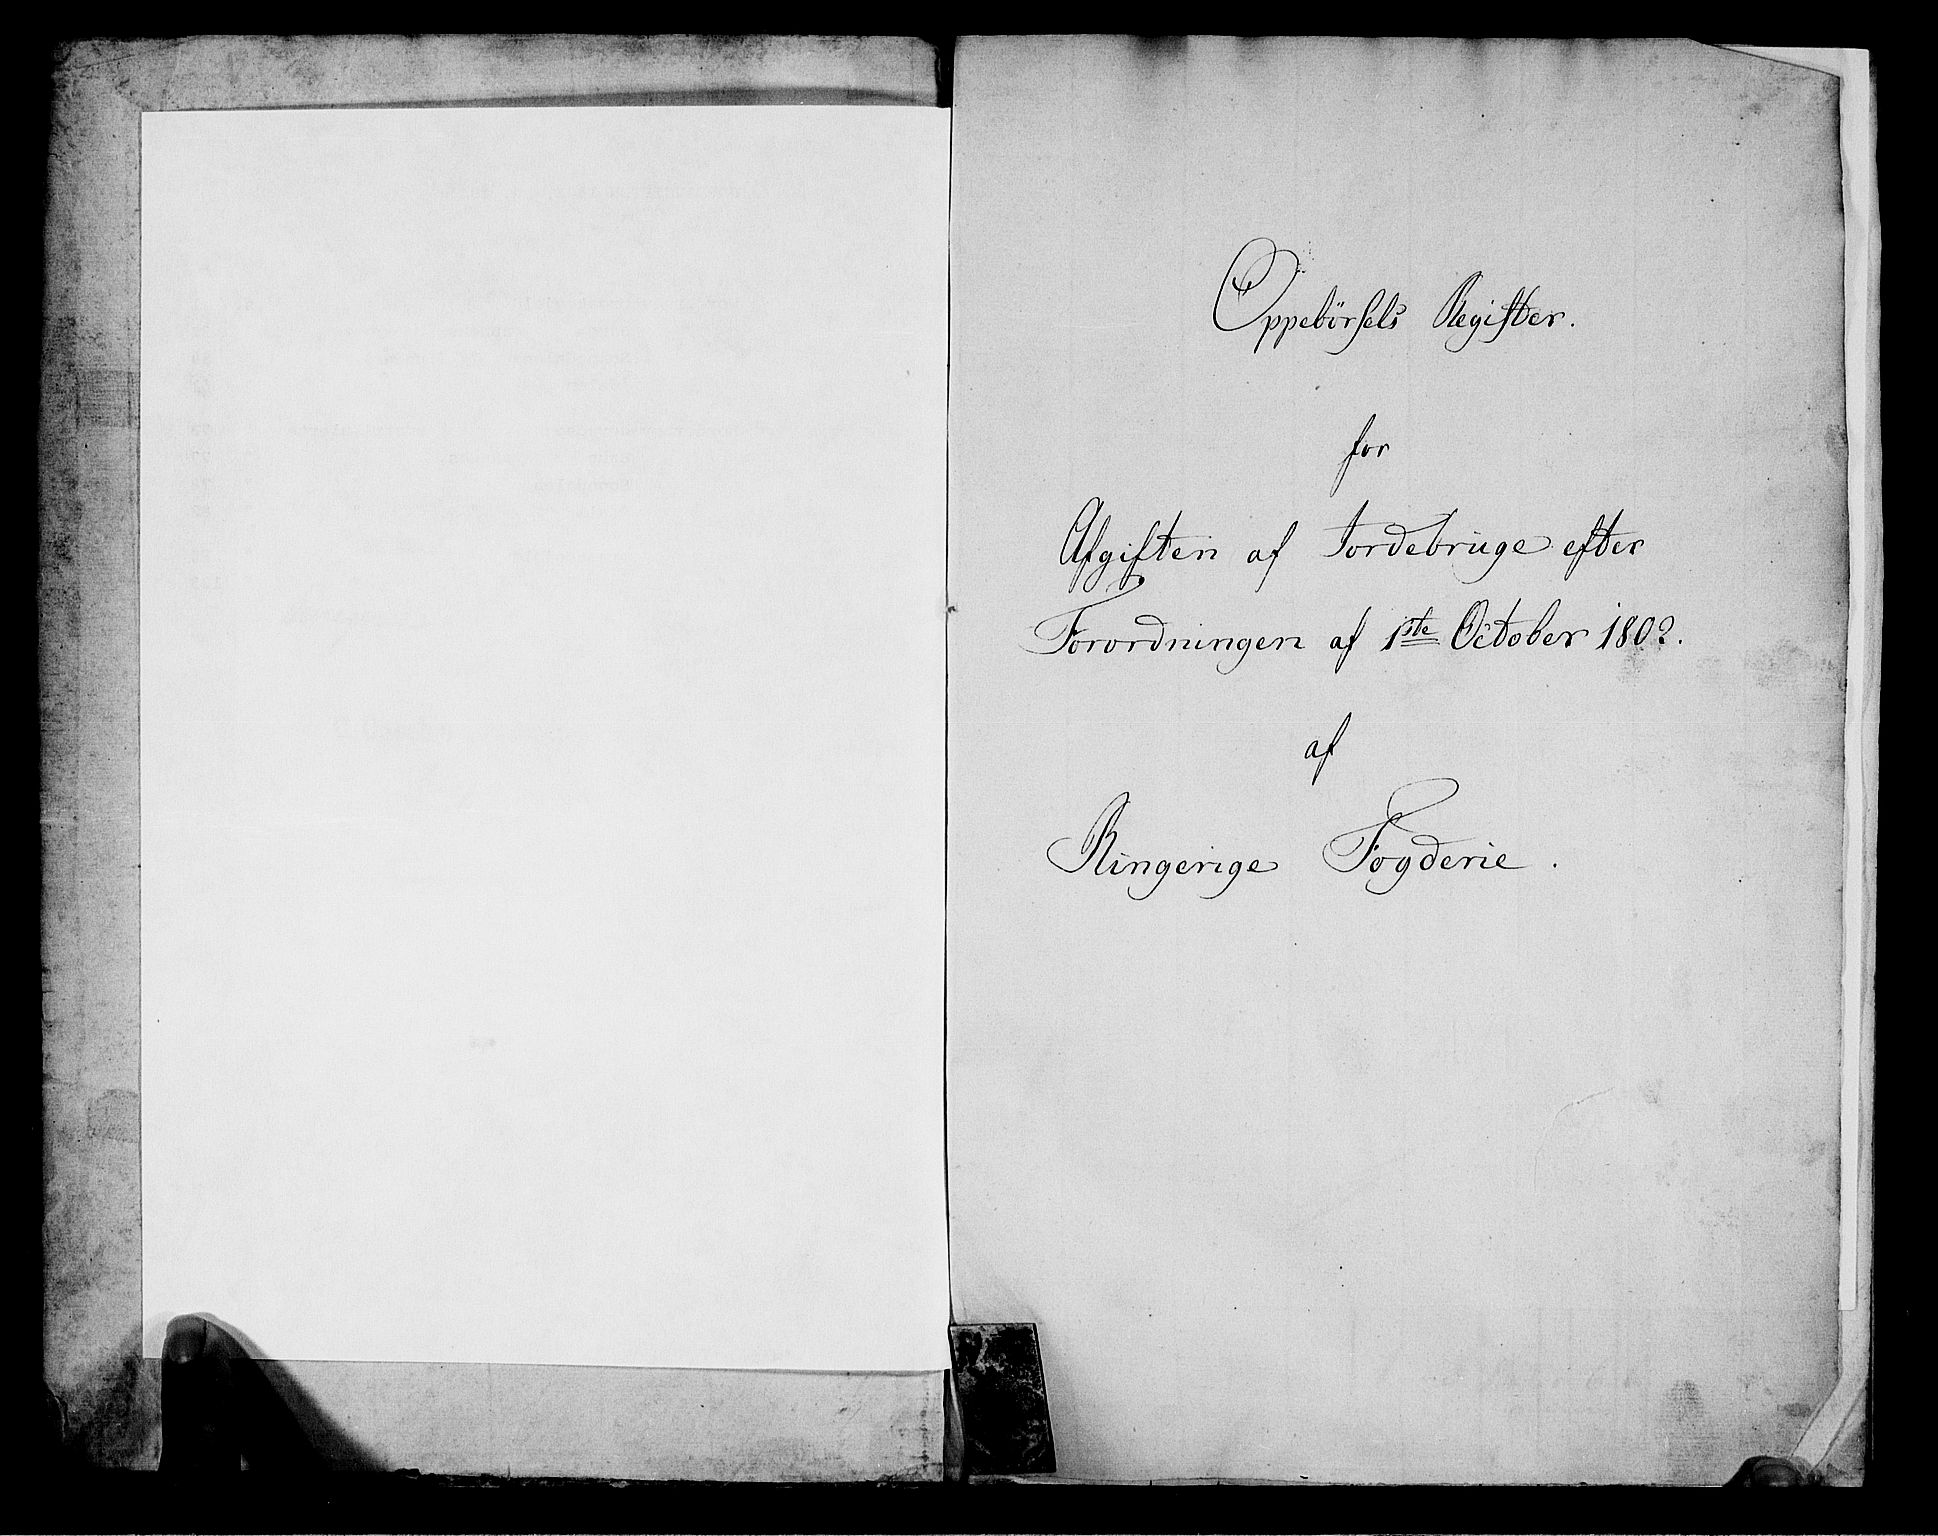 Oppebörsels Register.
for
Afgiften af Jordebruge efter
Forordningen af 1ste October 1802.
af
Ringerige Fogderie.